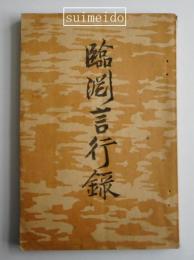 suimeido
臨淵言行録